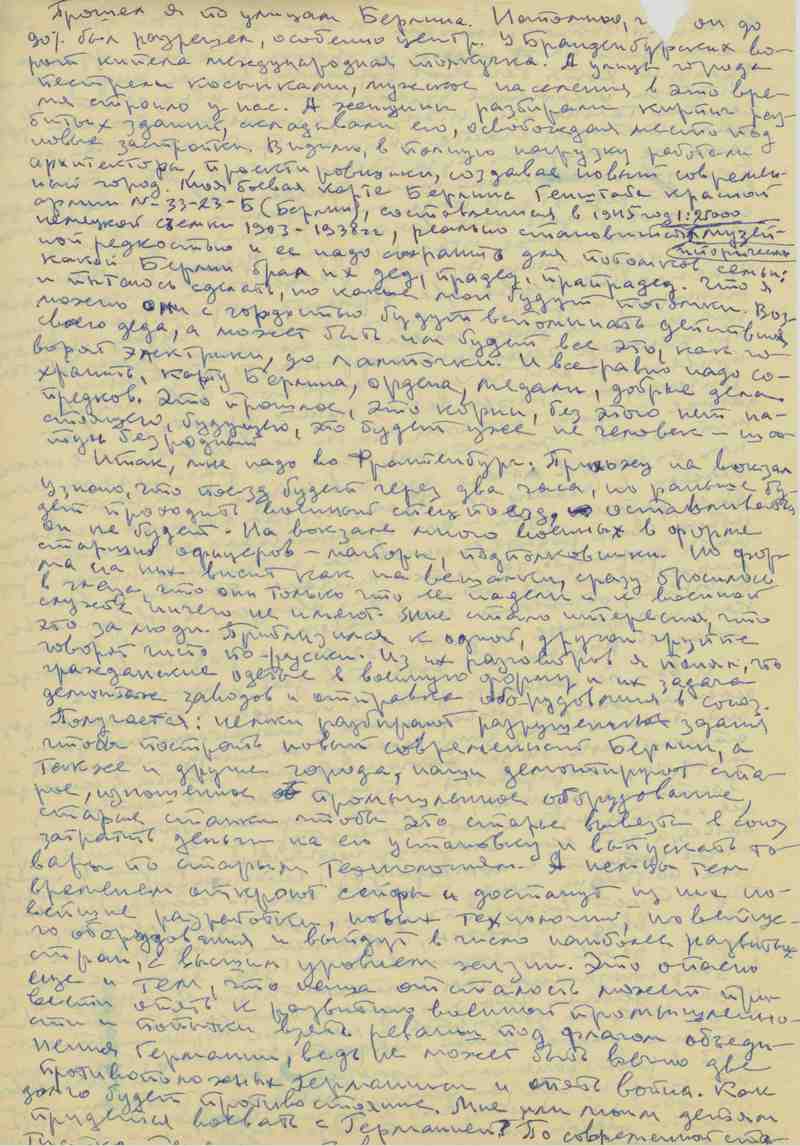 Прошел я по улицам Берлина. Напомню, что он до
90% был разрушен, особенно центр. У Бранденбургских во-
рот кипела международная толкучка. А улицы города
пестрели косынками, мужское население в это вре-
мя строило у нас. А женщины разбирали кирпич раз-
битых зданий, складывали его, освобождая место под
новые застройки. Видимо, в полную нагрузку работали
архитекторы, проектировщики, создавая новый современ-
ный город. Моя боевая карта Берлина Генштаба красной
армии №-33-23-Б (Берлин), составленная в 1945 год 1:25000
немецкой съемки 1903-1938гг, реально становится музей-
ной редкостью и ее надо сохранить для потомков семьи:
исторически
какой Берлин брал их дед, прадед, прапрадед. Что я
и пытаюсь сделать, но какие мои будут потомки. Воз-
можно они с гордостью будут вспоминать действия
своего деда, а может быть им будет все это, как го-
ворят электрики, до лампочки. И все-равно надо со-
хранить, карту Берлина, ордена, медали, добрые дела
предков. Это прошлое, это корни, без этого нет на-
стоящего, будущего, это будет уже не человек - ша-
тун безродный
Итак, мне надо во Франкенбург. Прихожу на вокзал
узнаю, что поезд будет через два часа, но раньше бу-
дет проходить военный спецпоезд, но останавливаться
он не будет. На вокзале много военных в форме
старших офицеров - майоры, подполковники. Но фор-
ма на них висит как на вешалки, сразу бросилось
в глаза, что они только что ее надели и к военной
службе ничего не имеют. Мне стало интересно, что
это за люди. Приблизился к одной, другой группе
говорят чисто по-русски. Из их разговоров я понял, что
гражданские одетые в военную форму и их задача
демонтаж заводов и отправка оборудования в союз.
Получается: немцы разбирают разрушенные здания
чтобы построить новый современный Берлин, а
также и другие города, наши демонтируют ста-
рое, изношенное промышленное оборудование,
старые станки чтобы это старье вывезти в союз
затратить деньги на его установку и выпускать то-
вары по старым технологиям. А немцы тем
временем откроют сейфы и достанут из них но-
вейшие разработки, новых технологий, новейше-
го оборудования и выйдут в число наиболее развитых
стран, с высшим уровнем жизни. Это опасно
еще и тем, что наша отсталость может при-
вести опять к развитию военной промышленно-
сти и попытки взять реванш под флагом объеди-
нения Германии, ведь не может быть вечно две
противоположных Германии и опять война. Как
долго будет противостояние. Мне или моим детям
придется воевать с Германией? По современной ста-